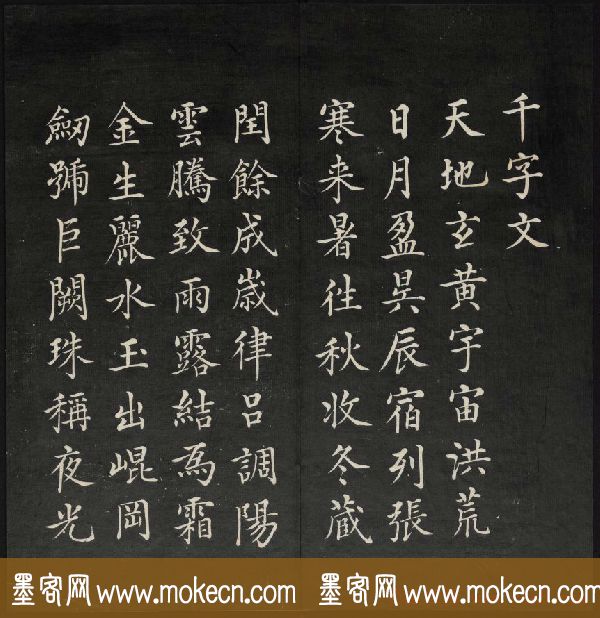 千字文
天地玄黃宇宙洪荒
日月盈昃辰宿列張
寒来暑往秋收冬蔵
閏餘成歲律呂調陽
雲騰致雨露結為霜
金生麗水玉出崐岡
劒號巨闕珠稱夜光
墨客网 www.mokecn.com 墨客网 www.mokecn.com